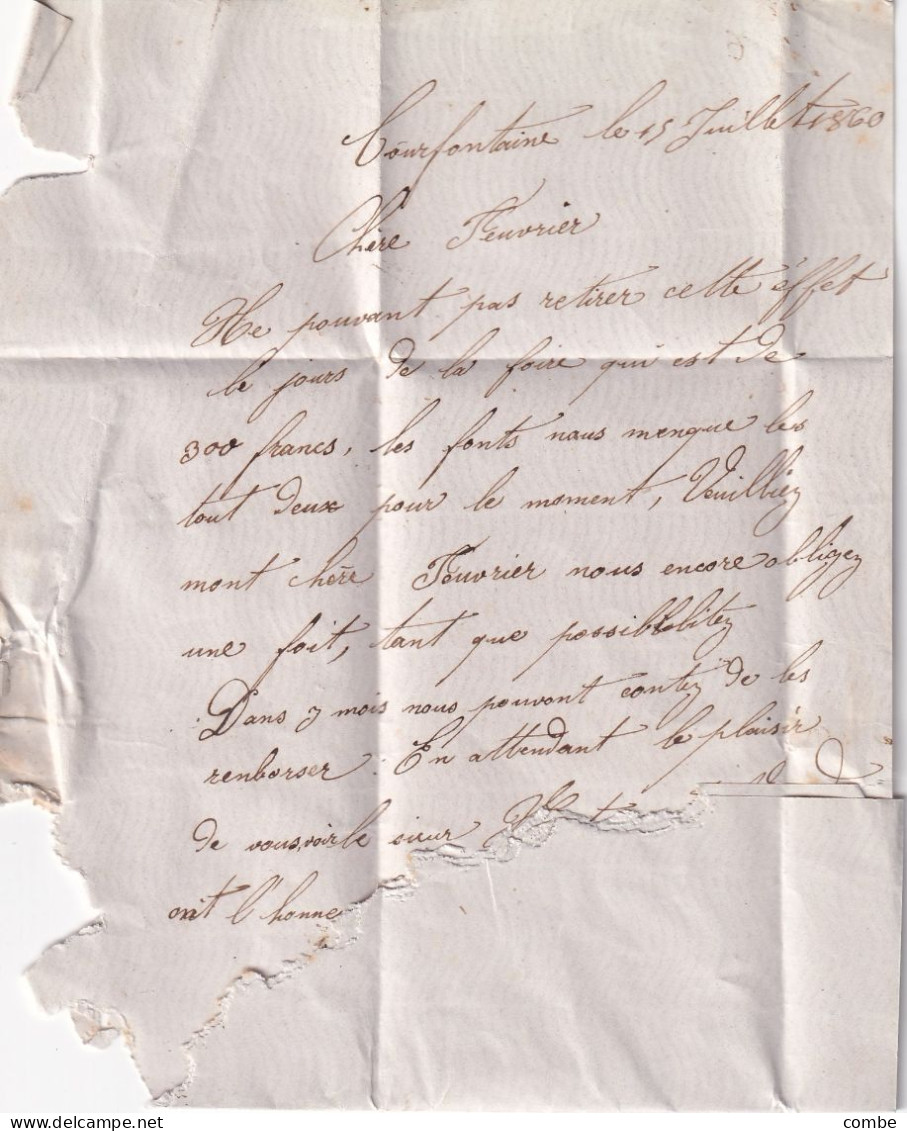 Courfontaine le 15 Juillet 1860
Chère Feuvrier
Ne pouvant pas retirer cette éffet
le jours de la foire qui est de
300 francs, les fonts nous menque les
tout deux pour le moment, Veuilliez
mont chère Feuvrier nous encore obligez
une foit, tant que possibblitez
Dans 3 mois nous pouvont contez de les
renborser. En attendant le plaisir
de vous voir le
ont l'honne
combe